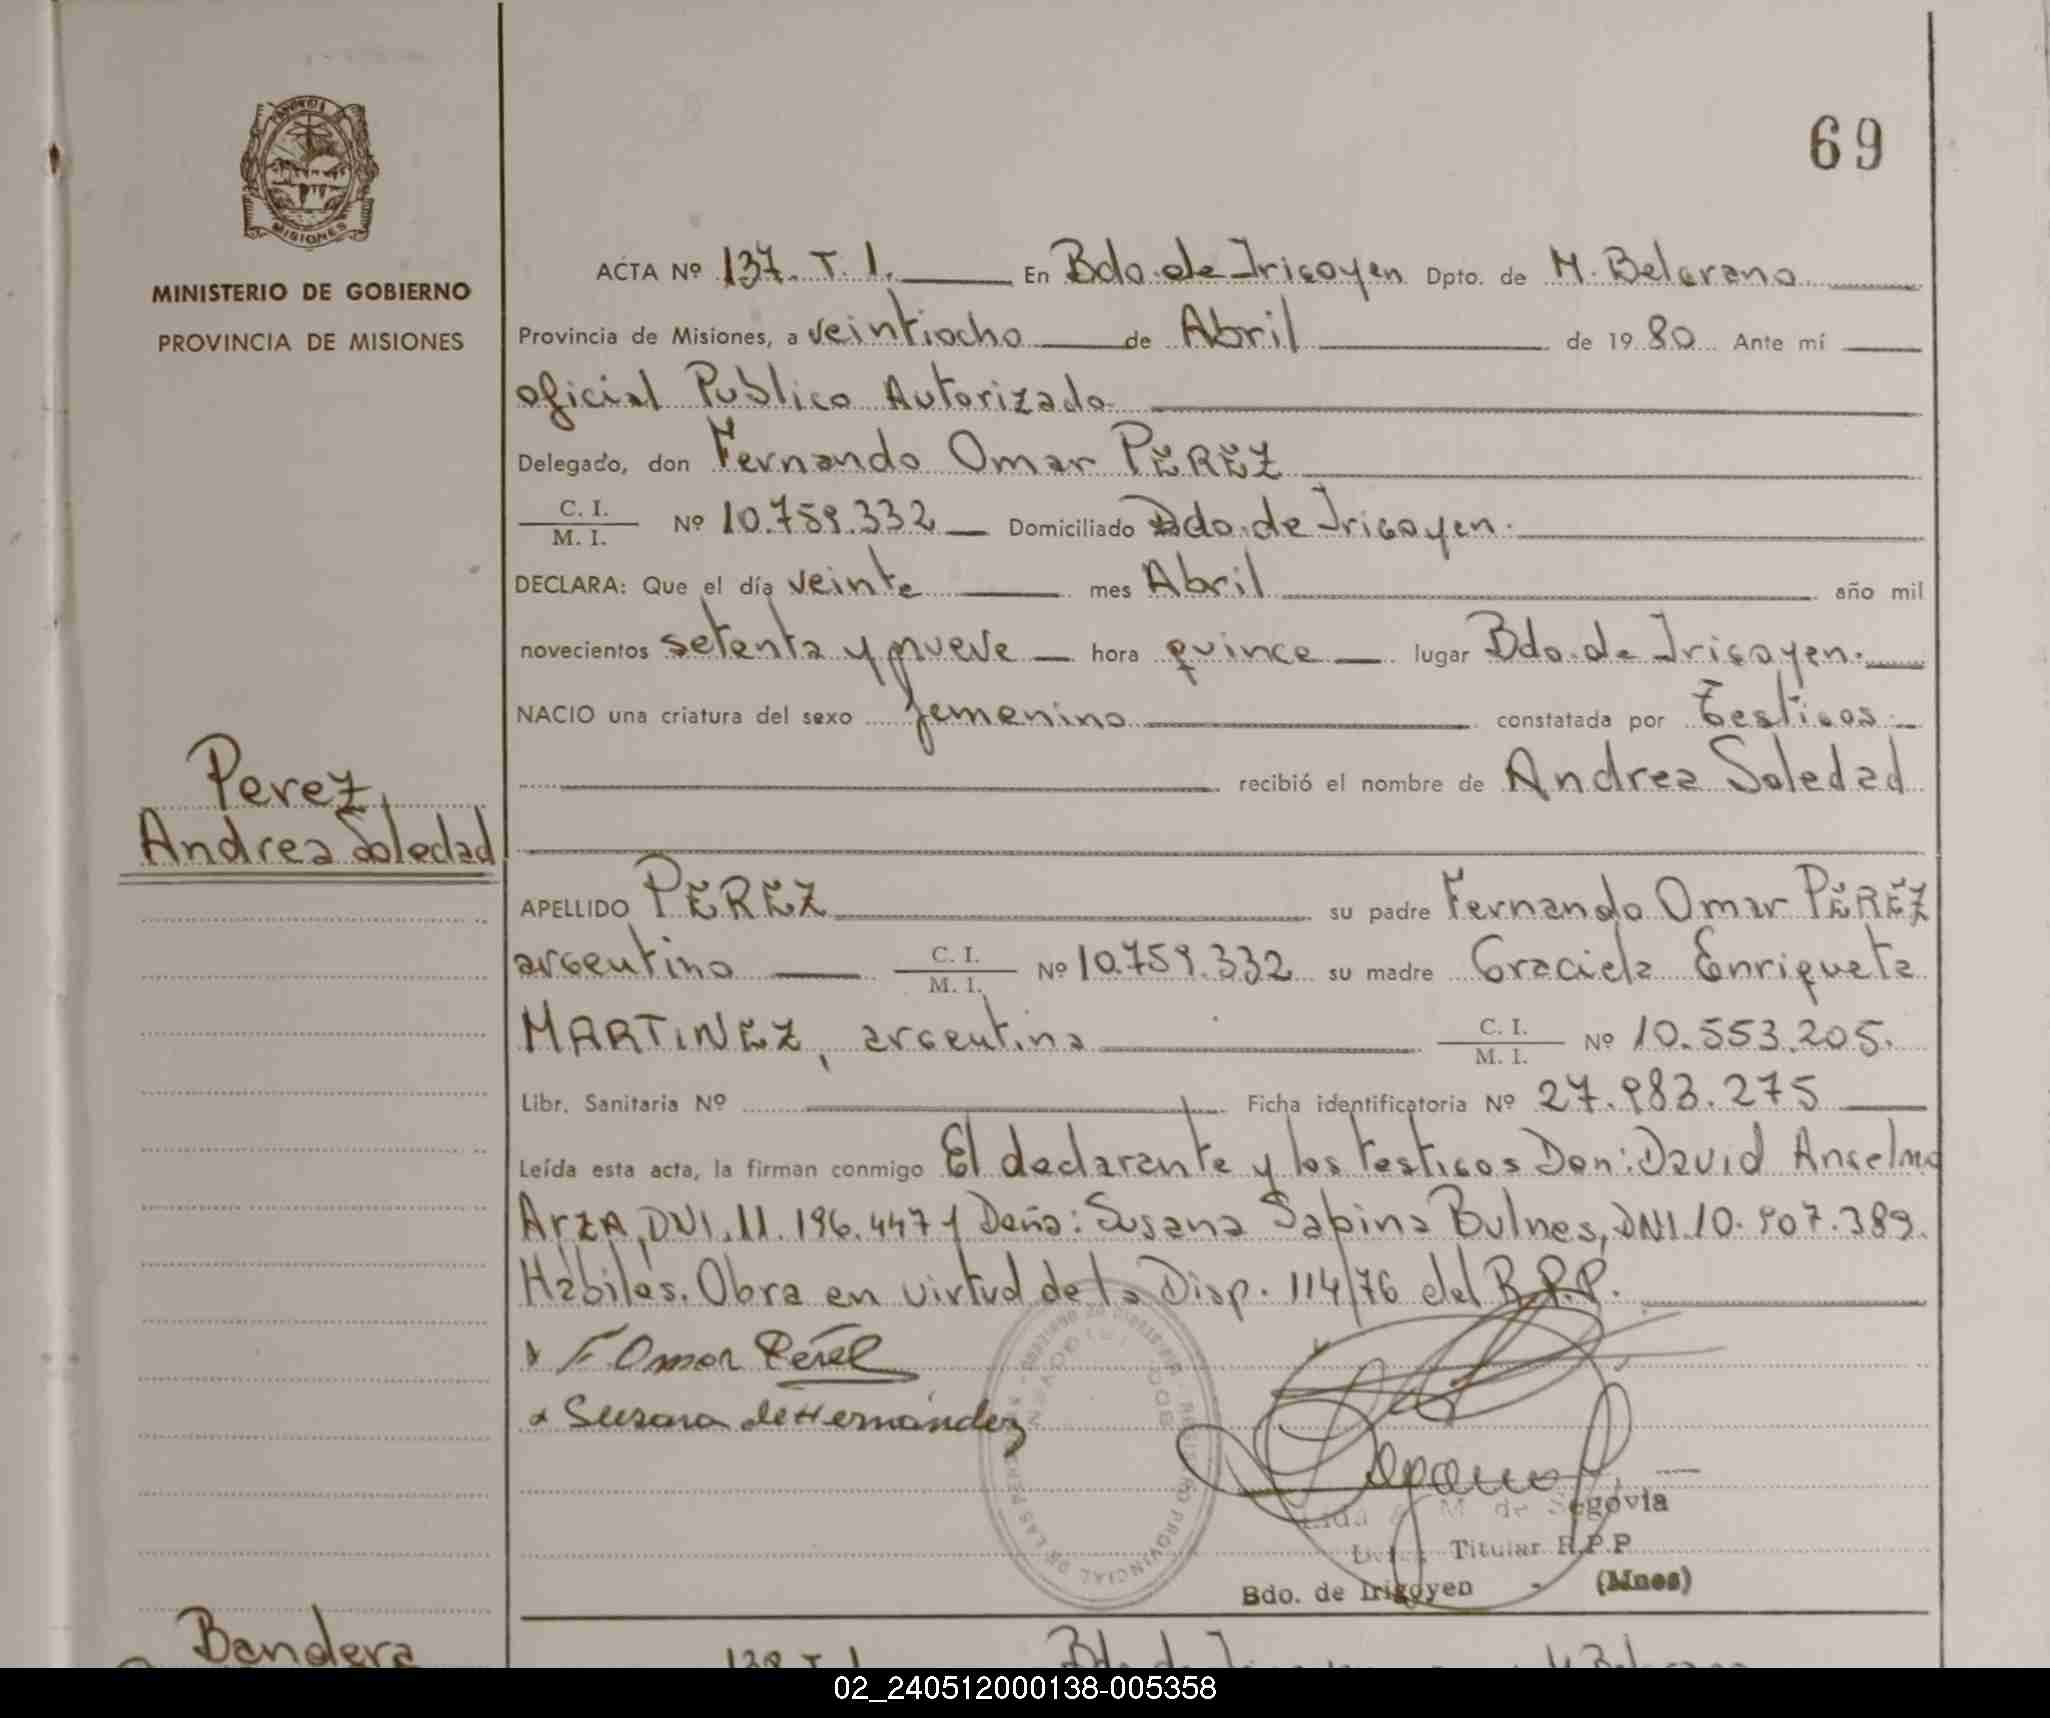 69
MISIONES
MINISTERIO DE GOBIERNO
PROVINCIA DE MISIONES
ACTA Nº 137. T. 1. En Bdo. de Irigoyen Dpto. de M. Belgrano
Provincia de Misiones, a veintiocho de Abril de 1980 Ante mí
oficial Publico Autorizado
Delegado, don Fernando Omar PEREZ
C. I.
M. I. Nº 10.759.332 Domiciliado Bdo. de Irigoyen.
DECLARA: Que el día veinte mes Abril año mil
novecientos setenta y nueve hora quince lugar Bdo. de Irigoyen.
NACIO una criatura del sexo femenino constatada por Testigos
recibió el nombre de Andrea Soledad
Perez
Andrea Soledad
APELLIDO PEREZ su padre Fernando Omar PEREZ
argentino C. I.
M. I. Nº 10.759.332 su madre Graciela Enriqueta
MARTINEZ, argentina C. I.
M. I. Nº 10.553.205.
Libr. Sanitaria Nº Ficha identificatoria Nº 27.983.275
Leída esta acta, la firman conmigo El declarante y los testigos Don: David Anselmo
Arza, DNI. 11.196.447 y Doña: Susana Sabina Bulnes, DNI. 10.907.389.
Hábiles. Obra en virtud de la Disp. 114/76 del R.P.P.
F. Omar Pérez
Susana de Hernández
M. de Segovia
Titular R.P.P
Bdo. de Irigoyen - (Mnes)
Bandera
138 T. 1 Bdo. de
02_240512000138-005358